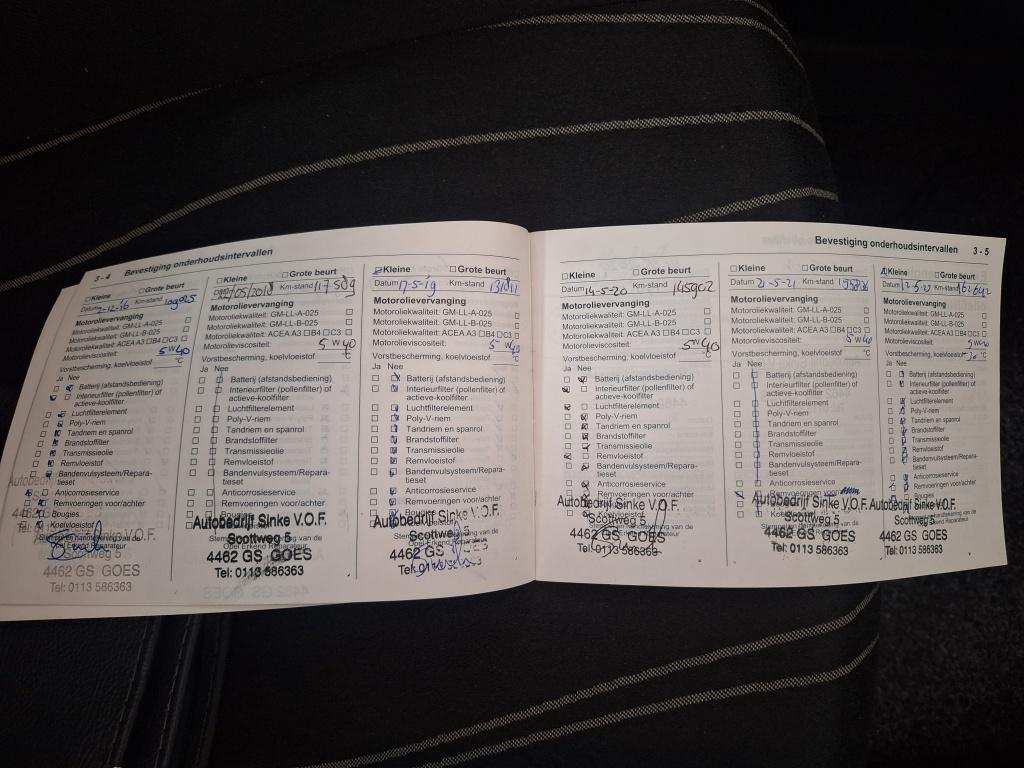 3 - 4 Bevestiging onderhoudsintervallen
☐ Kleine ☐ Grote beurt
Datum 2-12-16 Km-stand
Motorolievervanging
Motoroliekwaliteit: GM-LL-A-025 ☐
Motoroliekwaliteit: GM-LL-B-025 ☐
Motoroliekwaliteit: ACEA A3 ☐B4 ☐C3 ☐
Motorviscositeit: 5W40
Vorstbescherming, koelvloeistof °C
Ja Nee
Batterij (afstandsbediening)
Interieurfilter (pollenfilter) of
actieve-koolfilter
Luchtfilterelement
Poly-V-riem
Tandriem en spanrol
Brandstoffilter
Transmissieolie
Remvloeistof
Bandenvulsysteem/Repara-
tieset
Anticorrosieservice
Remvoeringen voor/achter
Bougies
Koelvloeistof
Opel Erkend Reparateur
Scottweg 5
4462 GS GOES
Tel: 0113 586363
☐ Kleine ☐ Grote beurt
/05/2018 Km-stand 117589
Motorolievervanging
Motoroliekwaliteit: GM-LL-A-025 ☐
Motoroliekwaliteit: GM-LL-B-025 ☐
Motoroliekwaliteit: ACEA A3 ☐B4 ☐C3 ☐
Motorviscositeit: 5W40
Vorstbescherming, koelvloeistof °C
Ja Nee
Batterij (afstandsbediening)
Interieurfilter (pollenfilter) of
actieve-koolfilter
Luchtfilterelement
Poly-V-riem
Tandriem en spanrol
Brandstoffilter
Transmissieolie
Remvloeistof
Bandenvulsysteem/Repara-
tieset
Anticorrosieservice
Remvoeringen voor/achter
Bougies
Autobedrijf Sinke V.O.F.
Scottweg 5
4462 GS GOES
Tel: 0113 586363
Kleine ☐ Grote beurt
Datum 17-5-19 Km-stand
Motorolievervanging
Motoroliekwaliteit: GM-LL-A-025 ☐
Motoroliekwaliteit: GM-LL-B-025 ☐
Motoroliekwaliteit: ACEA A3 ☐B4 ☐C3 ☐
Motoroliviscositeit: 5-W40
Vorstbescherming, koelvloeistof °C
Ja Nee
Batterij (afstandsbediening)
Interieurfilter (pollenfilter) of
actieve-koolfilter
Luchtfilterelement
Poly-V-riem
Tandriem en spanrol
Brandstoffilter
Transmissieolie
Remvloeistof
Bandenvulsysteem/Repara-
tieset
Anticorrosieservice
Remvoeringen voor/achter
Autobedrijf Sinke V.O.F.
Scottweg 5
Opel Erkend Reparateur
4462 GS GOES
Bevestiging onderhoudsintervallen 3 - 5
☐ Kleine ☐ Grote beurt
Datum 14-5-20 Km-stand 145902
Motorolievervanging
Motoroliekwaliteit: GM-LL-A-025 ☐
Motoroliekwaliteit: GM-LL-B-025 ☐
Motoroliekwaliteit: ACEA A3 ☐B4 ☐C3 ☐
Motorviscositeit: 5W40
Vorstbescherming, koelvloeistof °C
Ja Nee
Batterij (afstandsbediening)
Interieurfilter (pollenfilter) of
actieve-koolfilter
Luchtfilterelement
Poly-V-riem
Tandriem en spanrol
Brandstoffilter
Transmissieolie
Remvloeistof
Bandenvulsysteem/Repara-
tieset
Anticorrosieservice
Remvoeringen voor/achter
Autobedrijf Sinke V.O.F.
Scottweg 5
4462 GS GOES
Tel: 0113 586363
☐ Kleine ☐ Grote beurt
Datum 21-5-21 Km-stand
Motorolievervanging
Motoroliekwaliteit: GM-LL-A-025 ☐
Motoroliekwaliteit: GM-LL-B-025 ☐
Motoroliekwaliteit: ACEA A3 ☐B4 ☐C3 ☐
Motorviscositeit: 5W40
Vorstbescherming, koelvloeistof °C
Ja Nee
Batterij (afstandsbediening)
Interieurfilter (pollenfilter) of
actieve-koolfilter
Luchtfilterelement
Poly-V-riem
Tandriem en spanrol
Brandstoffilter
Transmissieolie
Remvloeistof
Bandenvulsysteem/Repara-
tieset
Anticorrosieservice
Remvoeringen
Autobedrijf Sinke V.O.F.
Scottweg 5
4462 GS GOES
Tel: 0113 586363
Kleine ☐ Grote beurt
Datum Km-stand
Motorolievervanging
Motoroliekwaliteit: GM-LL-A-025 ☐
Motoroliekwaliteit: GM-LL-B-025 ☐
Motoroliekwaliteit: ACEA A3 ☐B4 ☐C3 ☐
Motorviscositeit: 5W40
Vorstbescherming, koelvloeistof °C
Ja Nee
Batterij (afstandsbediening)
Interieurfilter (pollenfilter) of
actieve-koolfilter
Luchtfilterelement
Poly-V-riem
Tandriem en spanrol
Brandstoffilter
Transmissieolie
Remvloeistof
Bandenvulsysteem/Repara-
tieset
Anticorrosieservice
Remvoeringen voor/achter
Bougies
Autobedrijf Sinke V.O.F.
Scottweg 5
4462 GS GOES
Tel: 0113 586363